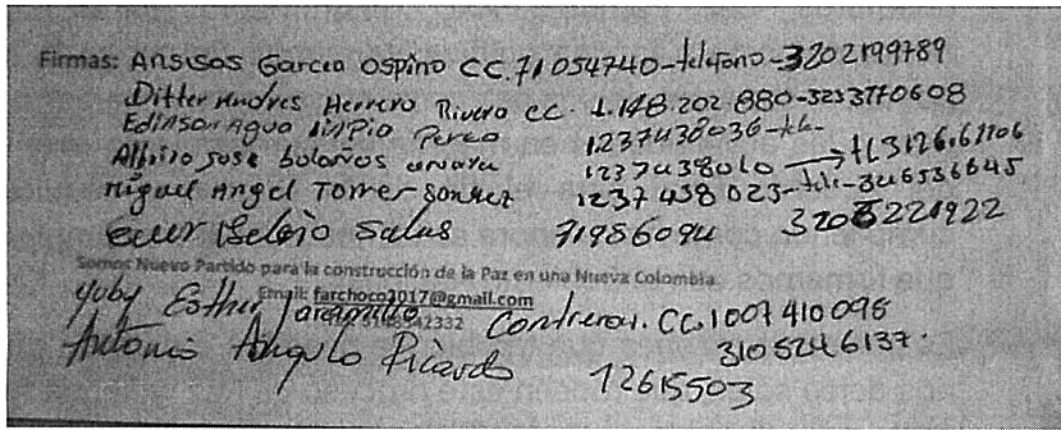 Firmas: Ansisos Garcia Ospino CC. 71054740-telefono-3202199789
Ditter Andres Herrera Rivera CC. 1.148.202 880-3233770608
Edinson Agua limpia Perea 1237438036-tel-
Alfiro jose bolaños 1237438010 → tl3126161106
Miguel Angel Torres 1237 438 023-tele-3206536645
Belejo Salas 71986094 3205221922
Somos Nuevo Partido para la construcción de la Paz en una Nueva Colombia
Email: farchoco2017@gmail.com
Yuby Esther jaramillo Contreras. CC. 1007410098
3105246137.
Antonio Angulo Picardo 12615503